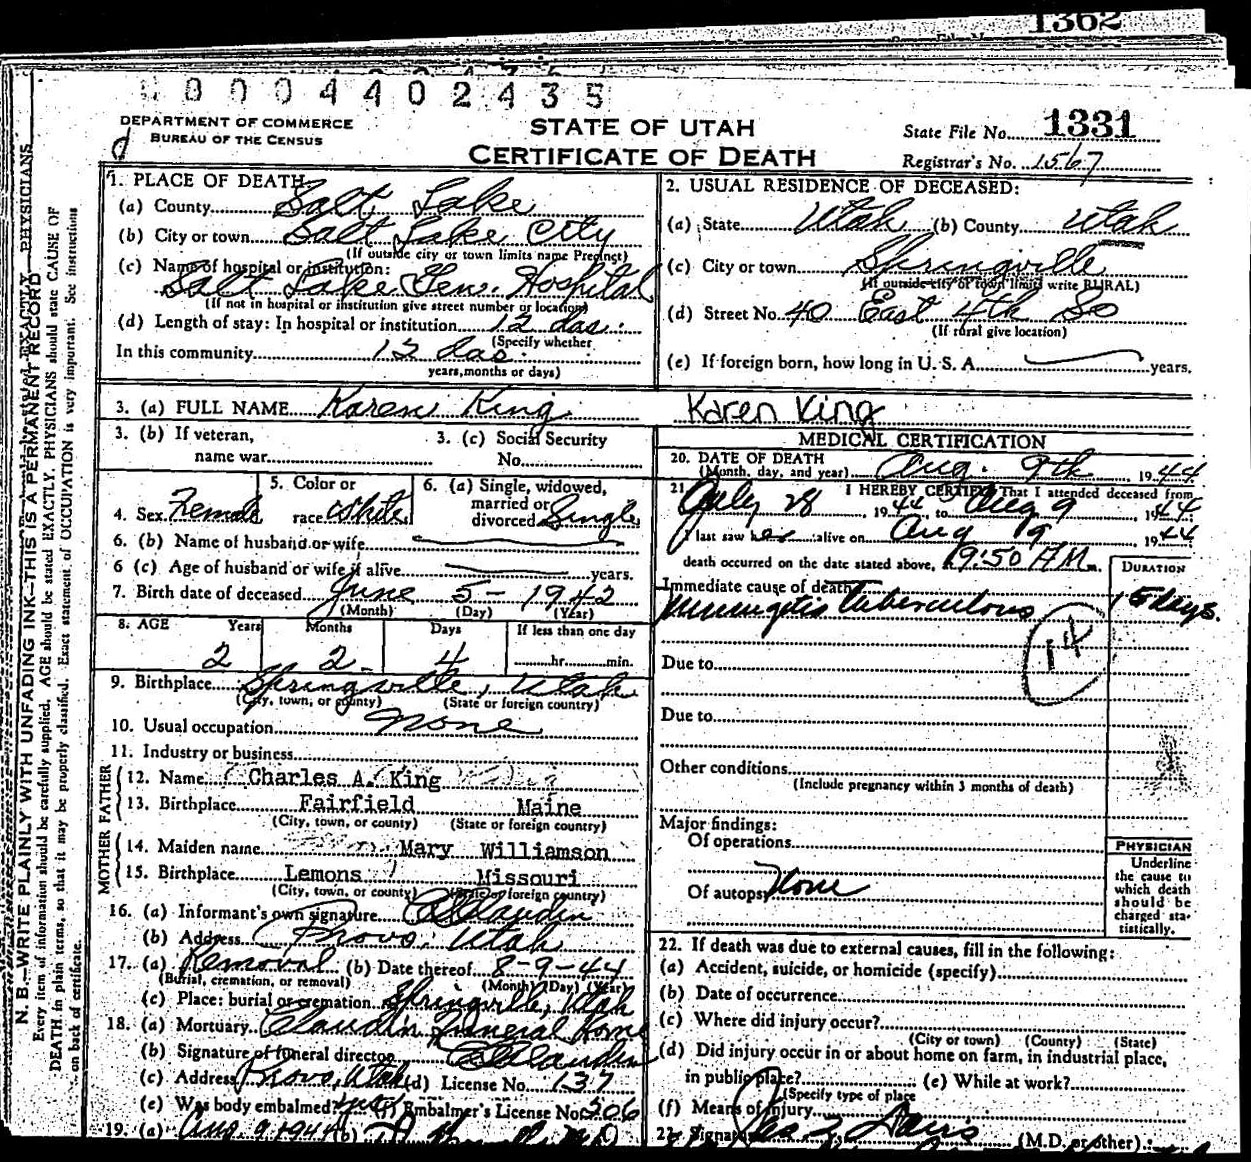 1362
0 0 0 4 4 0 2 4 3 5
DEPARTMENT OF COMMERCE
BUREAU OF THE CENSUS
d
STATE OF UTAH
CERTIFICATE OF DEATH
State File No. 1331
Registrar's No. 1567
N. B.—WRITE PLAINLY WITH UNFADING INK—THIS IS A PERMANENT RECORD
Every item of information should be carefully supplied. AGE should be stated EXACTLY. PHYSICIANS should state CAUSE OF
DEATH in plain terms, so that it may be properly classified. Exact statement of OCCUPATION is very important. See instructions
on back of certificate.
1. PLACE OF DEATH:
(a) County Salt Lake
(b) City or town Salt Lake City
(If outside city or town limits name Precinct)
(c) Name of hospital or institution:
Salt Lake Gen. Hospital
(If not in hospital or institution give street number or location)
(d) Length of stay: In hospital or institution 12 das.
(Specify whether
In this community 12 das.
years, months or days)
2. USUAL RESIDENCE OF DECEASED:
(a) State Utah (b) County Utah
(c) City or town Springville
(If outside city of town limits write RURAL)
(d) Street No. 40 East 4th So
(If rural give location)
(e) If foreign born, how long in U. S. A. years.
3. (a) FULL NAME Karen King Karen King
3. (b) If veteran,
name war
3. (c) Social Security
No.
4. Sex Female
5. Color or
race White
6. (a) Single, widowed,
married or
divorced Single
6. (b) Name of husband or wife
6 (c) Age of husband or wife if alive years.
7. Birth date of deceased June 5- 1942
(Month) (Day) (Year)
8. AGE Years Months Days If less than one day
2 2 4 hr. min.
9. Birthplace Springville, Utah
(City, town, or county) (State or foreign country)
10. Usual occupation none
11. Industry or business
FATHER
12. Name Charles A. King
13. Birthplace Fairfield Maine
(City, town, or county) (State or foreign country)
MOTHER
14. Maiden name Mary Williamson
15. Birthplace Lemons Missouri
(City, town, or county) (State or foreign country)
16. (a) Informant's own signature Claudin
(b) Address Provo, Utah
17. (a) Removal (b) Date thereof 8-9-44
(Burial, cremation, or removal) (Month) (Day) (Year)
(c) Place: burial or cremation Springville, Utah
18. (a) Mortuary Claudin Funeral Home
(b) Signature of funeral director Claudin
(c) Address Provo, Utah (d) License No. 137
(e) Was body embalmed? yes (f) Embalmer's License No. 306
19. (a) Aug. 9 1944 (b)
MEDICAL CERTIFICATION
20. DATE OF DEATH
(Month, day, and year) Aug. 9th 1944
21. I HEREBY CERTIFY That I attended deceased from
July 28, 1944, to Aug 9, 1944
I last saw her alive on Aug 9 1944
death occurred on the date stated above, 9:50 A M.
DURATION
Immediate cause of death
Meningitis tuberculous 15 days.
14
Due to
Due to
Other conditions
(Include pregnancy within 3 months of death)
Major findings:
Of operations
Of autopsy None
PHYSICIAN
Underline
the cause to
which death
should be
charged sta-
tistically.
22. If death was due to external causes, fill in the following:
(a) Accident, suicide, or homicide (specify)
(b) Date of occurrence
(c) Where did injury occur?
(City or town) (County) (State)
(d) Did injury occur in or about home on farm, in industrial place,
in public place? (e) While at work?
(Specify type of place
(f) Means of injury
23. Signature Davis (M.D. or other)